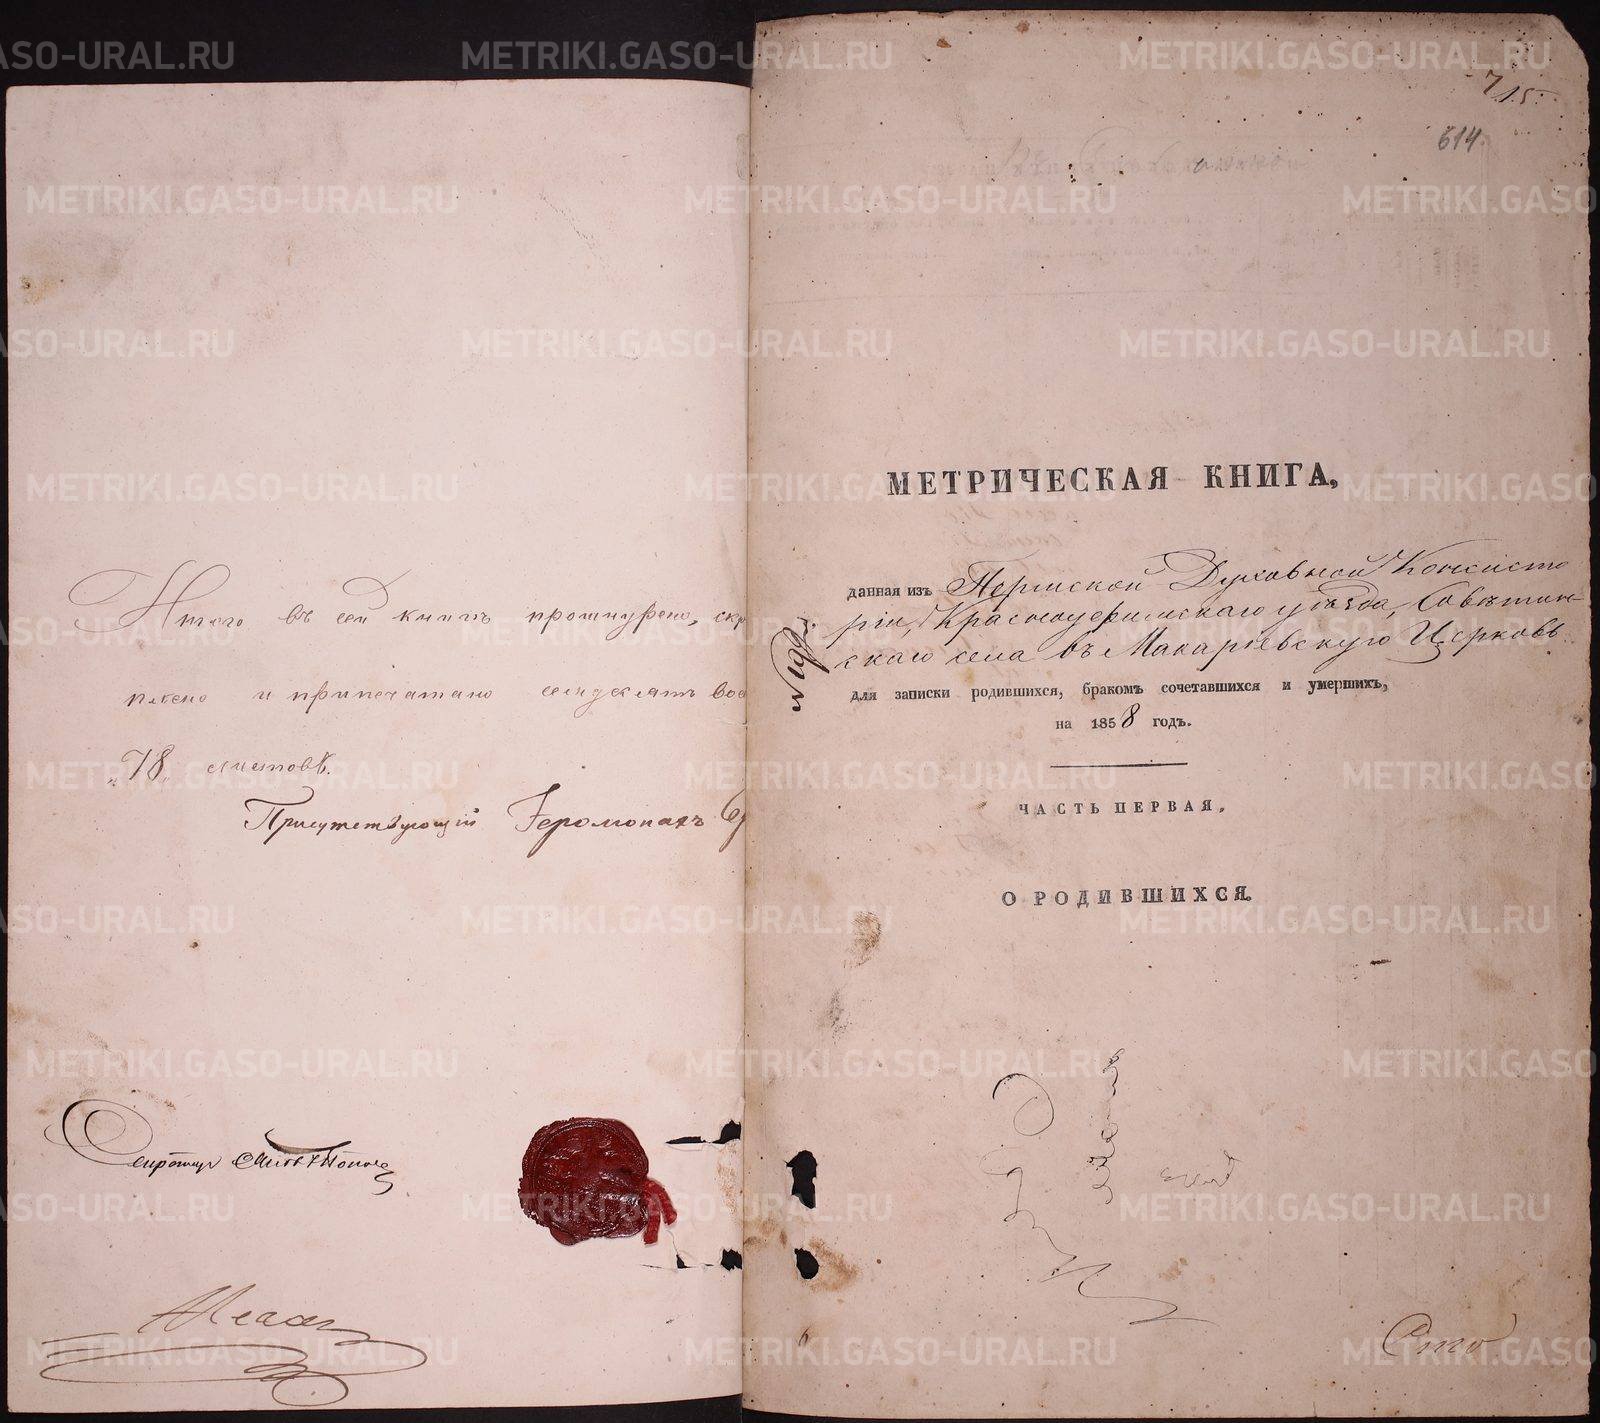 Итого въ сей книгѣ прошнурено, скр
плено и припечатано семдесятъ вос
„78„ листовъ.
Присутствующій Іеромонахъ
Секретарь
7/15.
614.
МЕТРИЧЕСКАЯ КНИГА,
данная изъ Пермской Духовной Консисто
ріи, Красноуфимскаго уѣзда, Совѣтин-
скаго села въ Макарьевскую Церковь
для записки родившихся, бракомъ сочетавшихся и умершихъ,
на 1858 годъ.
ЧАСТЬ ПЕРВАЯ,
О РОДИВШИХСЯ.
METRIKI.GASO-URAL.RU